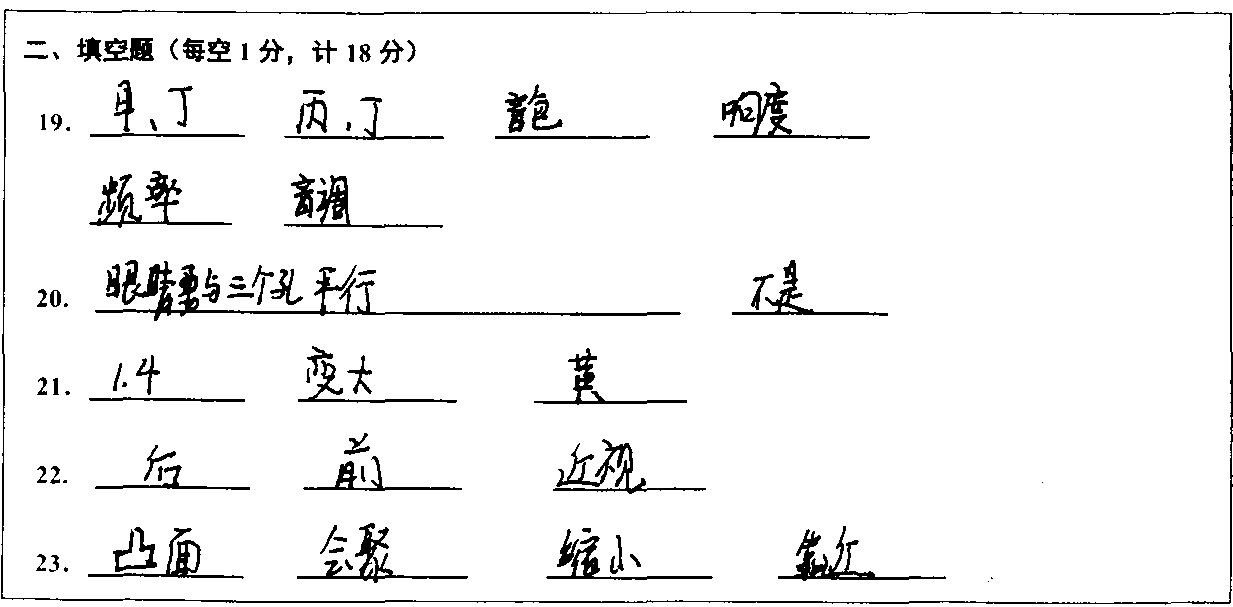 二、填空题（每空1分，计18分）
19. 甲、丁 丙、丁 音色 响度
频率 音调
20. 眼睛与三个孔平行 不是
21. 1.4 变大 黄
22. 后 前 近视
23. 凸面 会聚 缩小 靠近